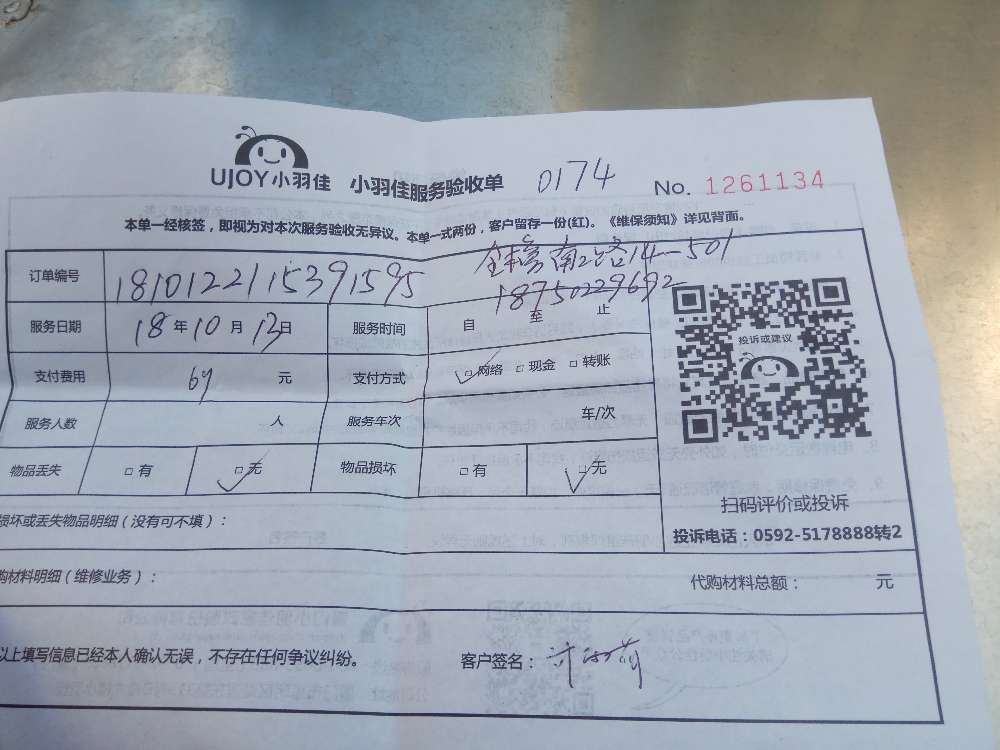 UJOY小羽佳 小羽佳服务验收单 0174 No. 1261134
本单一经核签，即视为对本次服务验收无异议。本单一式两份，客户留存一份(红)。《维保须知》详见背面。
南2路14-501
订单编号 181012211539 1595
18750229692
服务日期 18年10月13日 服务时间 自 至 止
投诉或建议
支付费用 69 元 支付方式 ☑网络 □现金 □转账
服务人数 人 服务车次 车/次
物品丢失 □有 ☑无 物品损坏 □有 ☑无
扫码评价或投诉
损坏或丢失物品明细（没有可不填）：
投诉电话：0592-5178888转2
购材料明细（维修业务）： 代购材料总额： 元
以上填写信息已经本人确认无误，不存在任何争议纠纷。 客户签名：